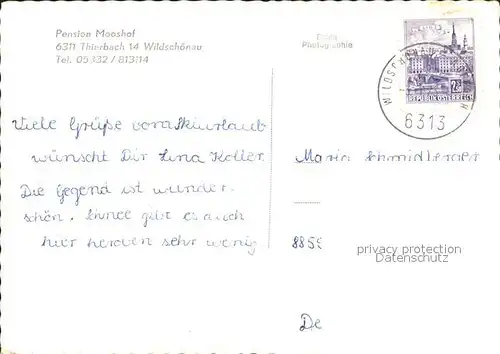 Pension Mooshof
6311 Thierbach 14 Wildschönau
Tel. 05332 / 813114
Photographie
REPUBLIK ÖSTERREICH
WILDSCHÖNAU
6313
Viele Grüße vom Skiurlaub
wünscht Dir Lena Koller
Die Gegend ist wunder-
schön. gibt es auch
hier heroben sehr wenig
Maria Schmidberger
885
privacy protection
Datenschutz
De